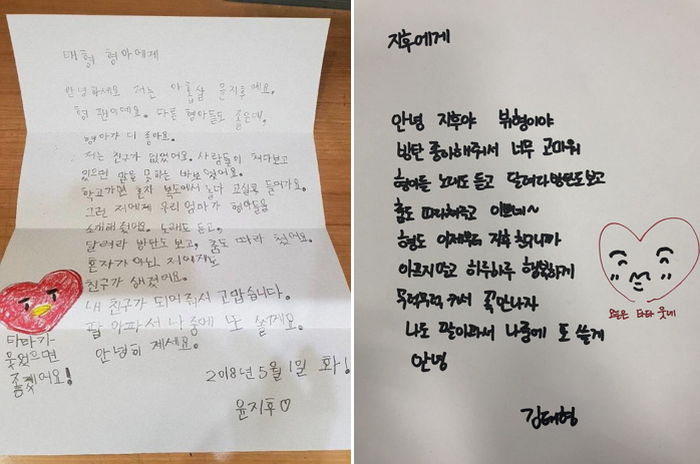 태형 형아에게
안녕하세요 저는 아홉살 윤지후예요.
형 팬이예요. 다른 형아들도 좋은데,
형아가 더 좋아요.
저는 친구가 없었어요. 사람들이 쳐다보고
있으면 말을 못하는 바보였어요.
학교가면 혼자 복도에서 놀다 교실로 들어가요.
그런 저에게 우리 엄마가 형아들을
소개해 줬어요. 노래도 듣고,
달려라 방탄도 보고, 춤도 따라 췄어요.
혼자가 아닌 저에게도
친구가 생겼어요.
내 친구가 되어줘서 고맙습니다.
팔 아파서 나중에 또 쓸께요.
안녕히 계세요.
2018년 5월 1일 화!
윤지후♡
타타가
웃었으면
좋겠어요!
지후에게
안녕 지후야 뷔형이야
방탄 좋아해줘서 너무 고마워
형아들 노래도 듣고 달려라 방탄도 보고
춤도 따라해주고 이쁘네~
형도 이제부터 지후 친구니까
아프지 말고 하루하루 행복하게
무럭무럭 커서 꼭 만나자
나도 팔아파서 나중에 또 쓸게
안녕
김태형
오늘은 타타 웃네